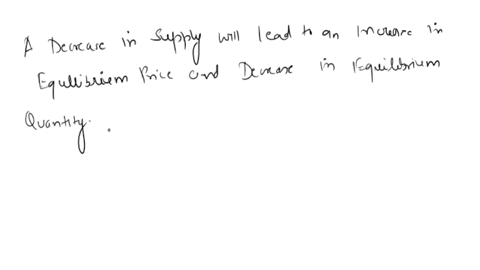 A Decrease in Supply will lead to an Increase in
Equilibrium Price and Decrease in Equilibrium
Quantity.